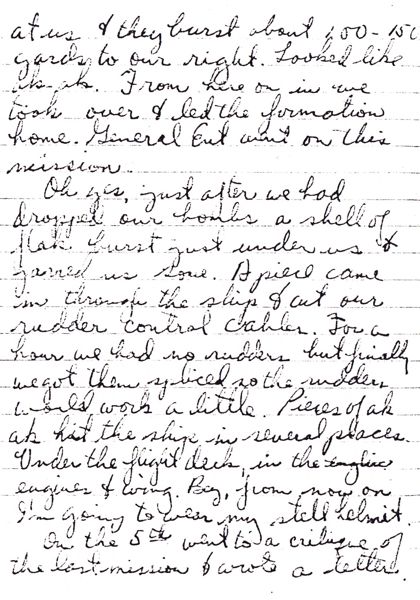 at us & they burst about 100-150
yards to our right. Looked like
ak-ak. From here on in we
took over & led the formation
home. General Ent went on this
mission.
Oh yes, just after we had
dropped our bombs a shell of
flak burst just under us &
jarred us some. A piece came
in through the ship & cut our
rudder control cables. For a
hour we had no rudders but finally
we got them spliced so the rudders
would work a little. Pieces of ak
ak hit the ship in several places.
Under the flight deck, in the
engines & wing. Boy, from now on
I'm going to wear my steel helmit.
On the 5th went to a critique of
the last mission & wrote a letter.